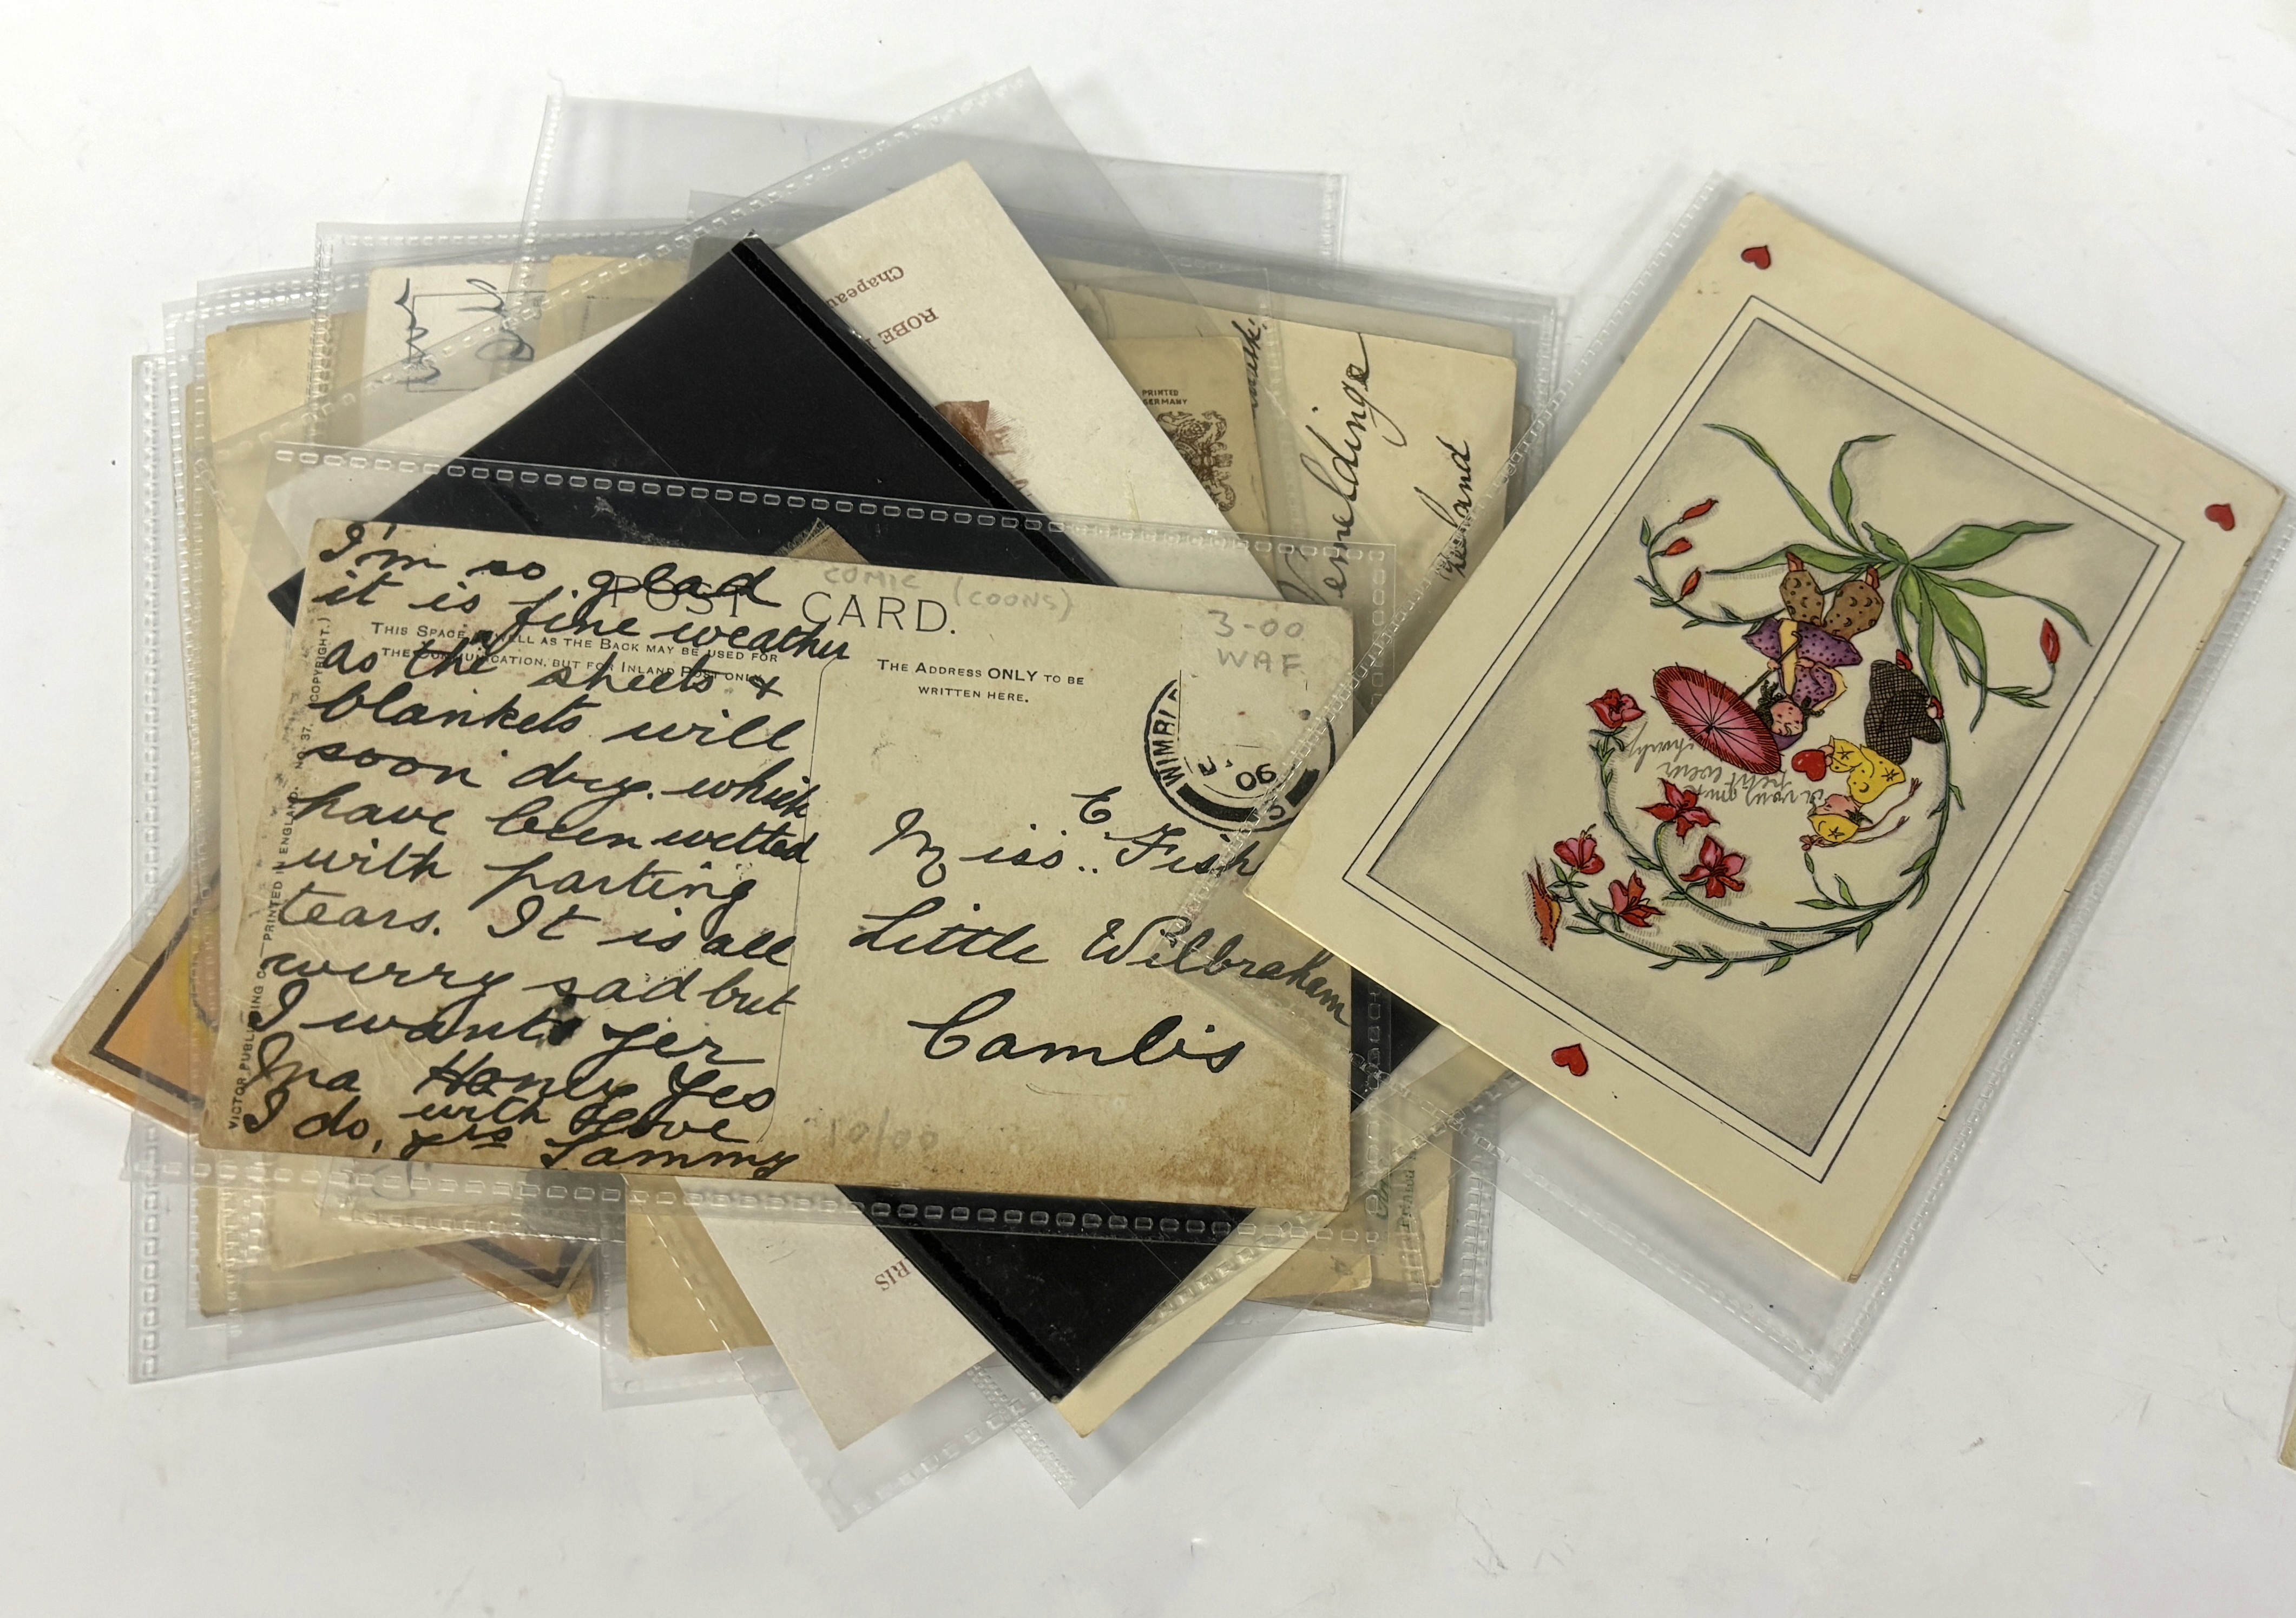 I'm so glad
it is fine weather
as the sheets +
blankets will
soon dry. which
have been wetted
with parting
tears. It is all
werry sad but
I wants yer
Ma Honey Yes
I do, with Love
yrs Sammy
POST CARD.
COMIC (COONS)
THIS SPACE AS WELL AS THE BACK MAY BE USED FOR
THE COMMUNICATION, BUT FOR INLAND POST ONLY.
THE ADDRESS ONLY TO BE
WRITTEN HERE.
3-00
WAF
06
E
Miss.. Fish
Little Wilbraham
Cambs
10/00
VICTOR PUBLISHING CO. PRINTED IN ENGLAND. NO. 37 (COPYRIGHT.)
Chapeau
ROBE
RIS
PRINTED
GERMANY